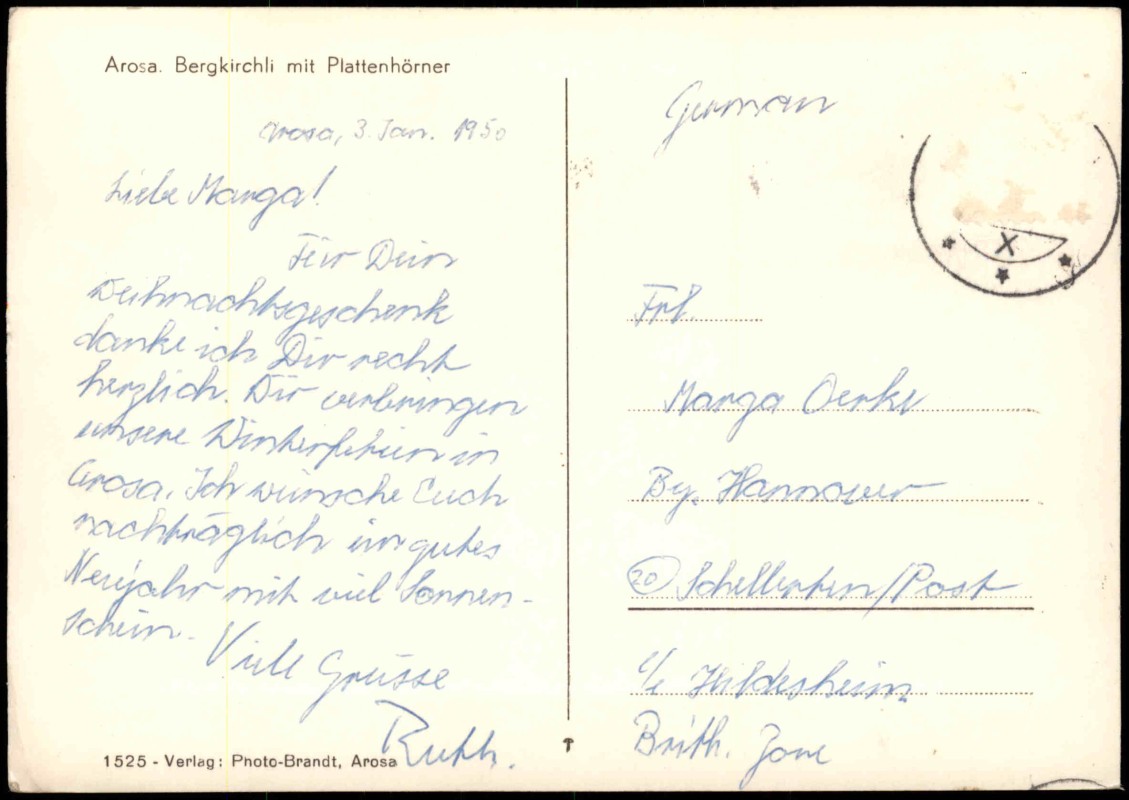 Arosa. Bergkirchli mit Plattenhörner
Arosa, 3. Jan. 1950
Liebe Marga!
Für Dein
Weihnachtsgeschenk
danke ich Dir recht
herzlich. Wir verbringen
unsere Winterferien in
Arosa. Ich wünsche Euch
nachträglich ein gutes
Neujahr mit viel Sonnen-
schein.
Viele Grüsse
Ruth.
1525 - Verlag: Photo-Brandt, Arosa
German
X
Frl.
Marga Oerke
Bz. Hannover
20 Schellerten/Post
Hildesheim
Brith. Zone